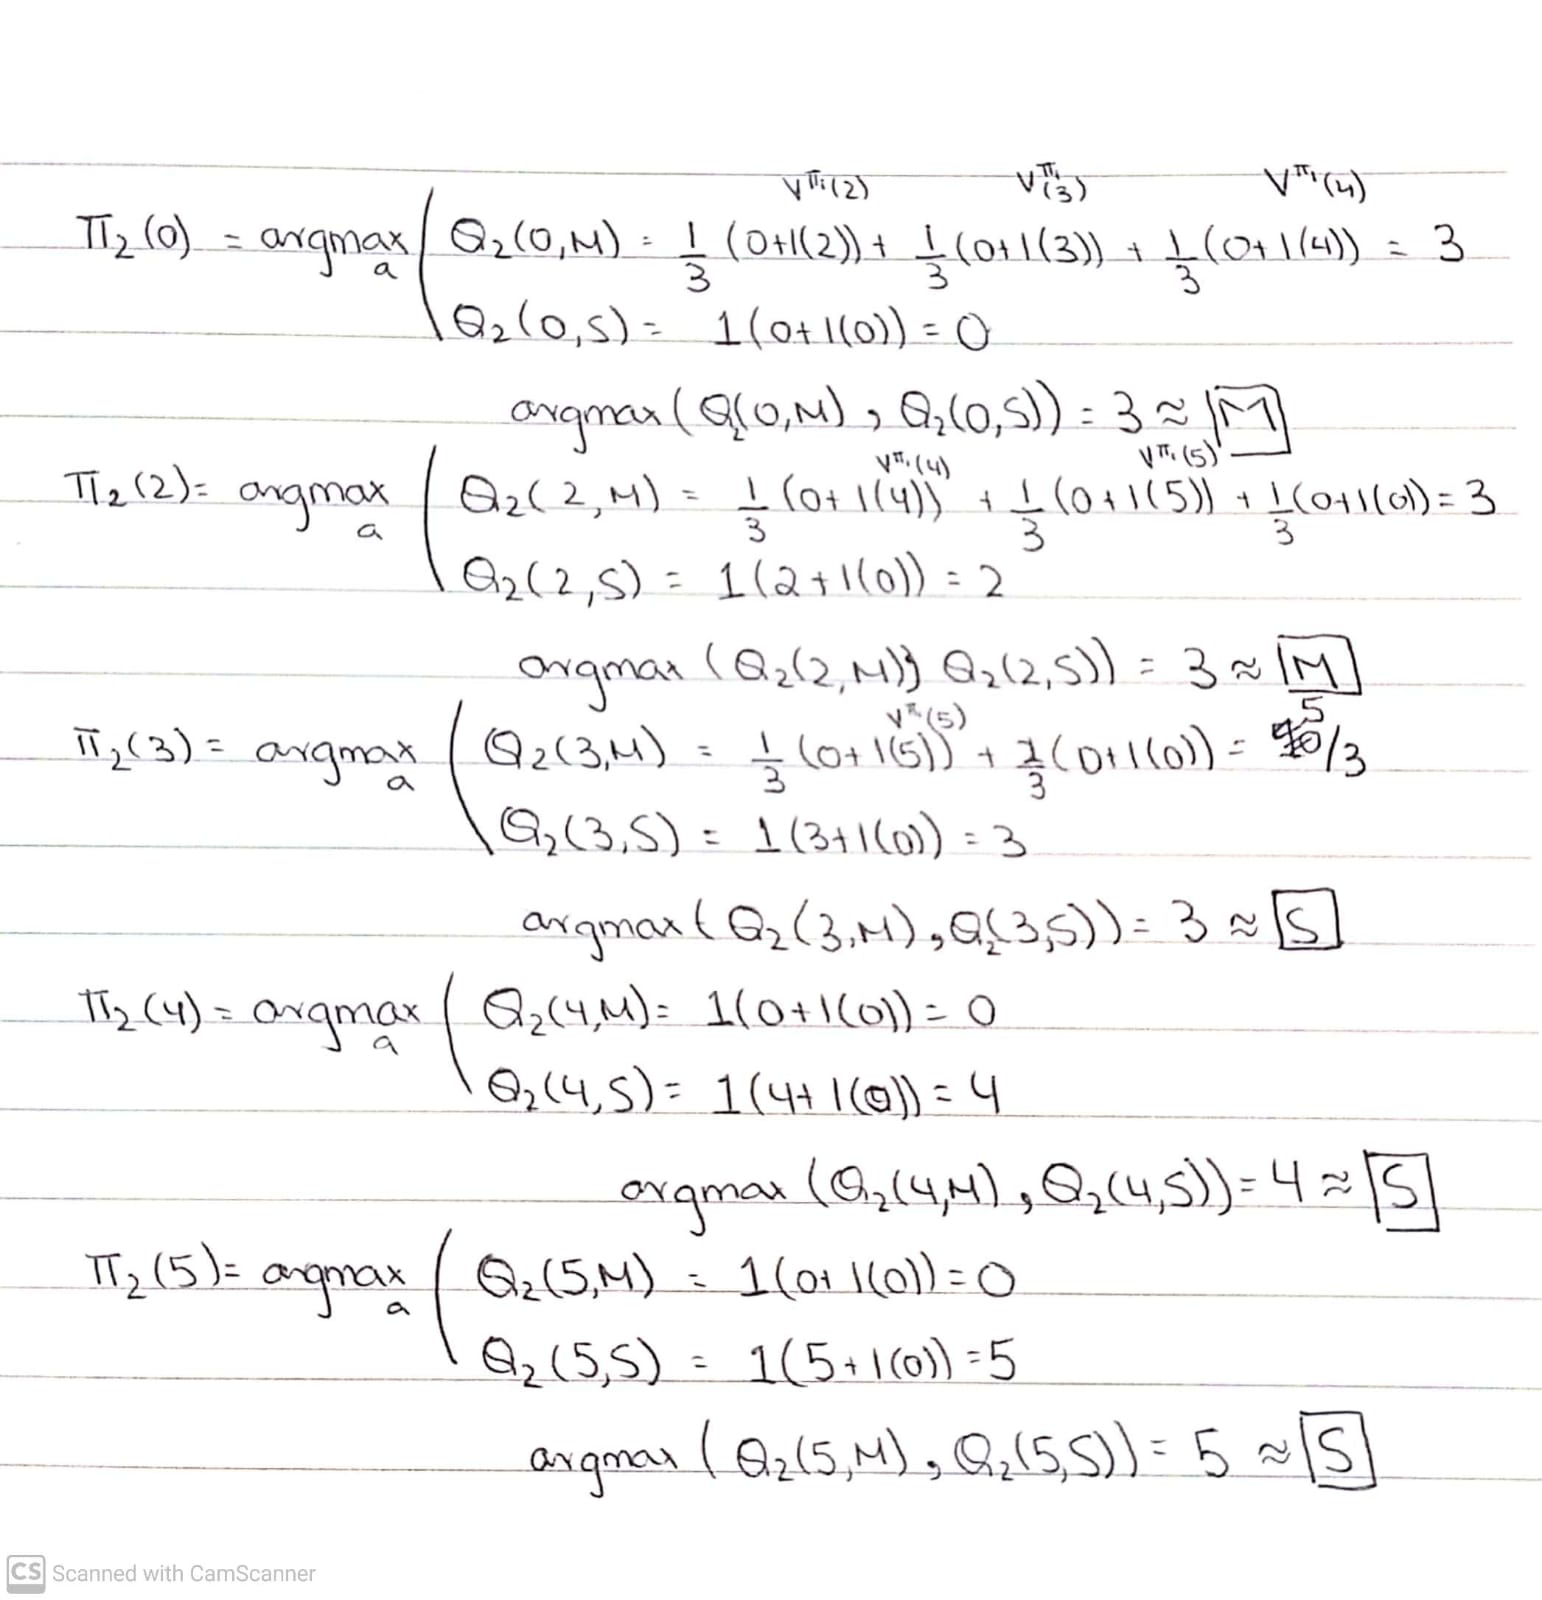 V^π₁(2) V^π₁(3) V^π₁(4)
π₂(0) = argmax a ( Q₂(0,M) = 1/3 (0+1(2)) + 1/3 (0+1(3)) + 1/3 (0+1(4)) = 3
Q₂(0,S) = 1(0+1(0)) = 0
argmax (Q₂(0,M), Q₂(0,S)) = 3 ≈ M
V^π₁(4) V^π₁(5)
π₂(2) = argmax a ( Q₂(2,M) = 1/3 (0+1(4)) + 1/3 (0+1(5)) + 1/3 (0+1(0)) = 3
Q₂(2,S) = 1(2+1(0)) = 2
argmax (Q₂(2,M), Q₂(2,S)) = 3 ≈ M
V^π₁(5)
π₂(3) = argmax a ( Q₂(3,M) = 1/3 (0+1(5)) + 2/3 (0+1(0)) = 5/3
Q₂(3,S) = 1(3+1(0)) = 3
argmax (Q₂(3,M), Q₂(3,S)) = 3 ≈ S
π₂(4) = argmax a ( Q₂(4,M) = 1(0+1(0)) = 0
Q₂(4,S) = 1(4+1(0)) = 4
argmax (Q₂(4,M), Q₂(4,S)) = 4 ≈ S
π₂(5) = argmax a ( Q₂(5,M) = 1(0+1(0)) = 0
Q₂(5,S) = 1(5+1(0)) = 5
argmax (Q₂(5,M), Q₂(5,S)) = 5 ≈ S
CS Scanned with CamScanner